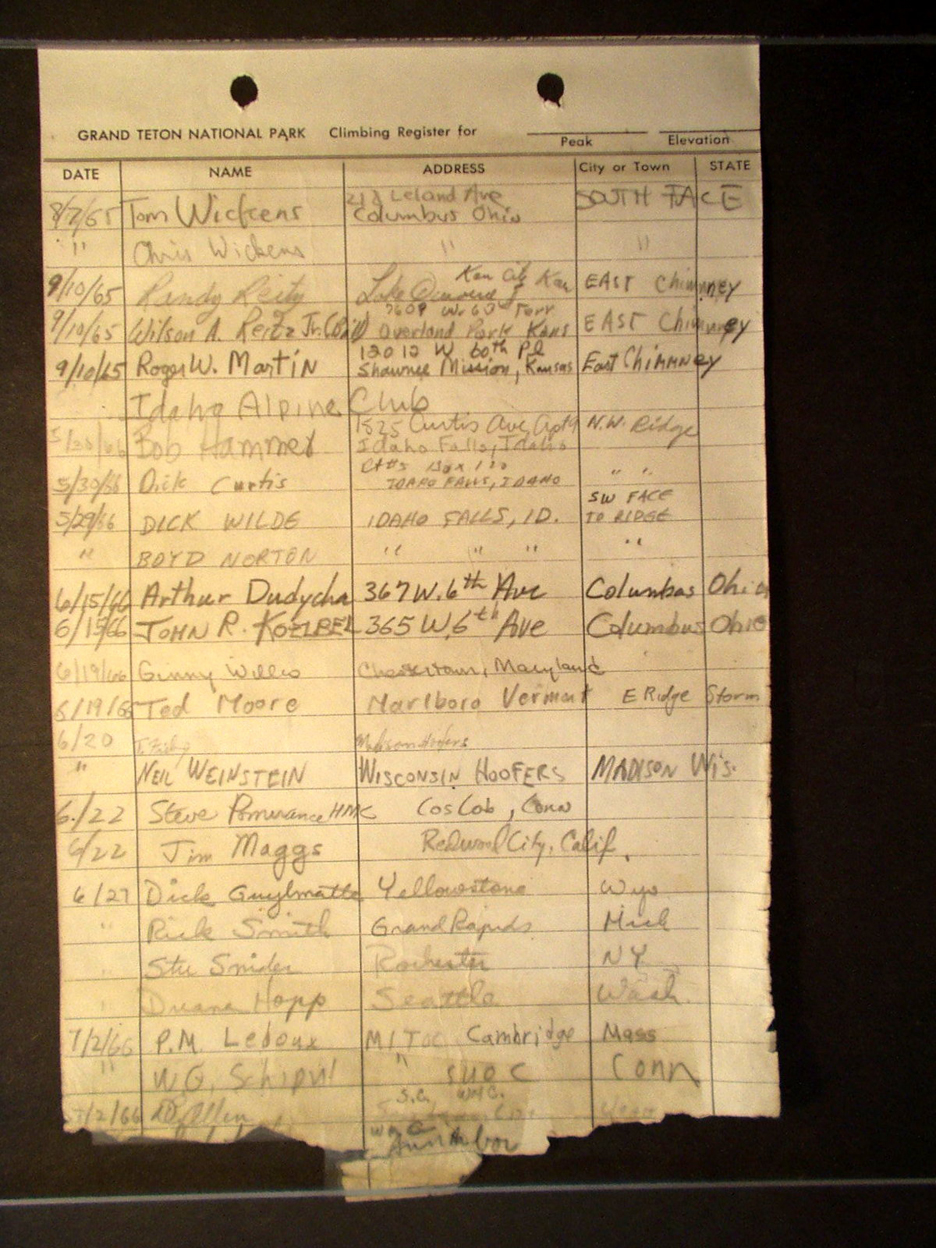 GRAND TETON NATIONAL PARK Climbing Register for
Peak Elevation
DATE NAME ADDRESS City or Town STATE
Leland Ave
8/7/65 Tom Wickens Columbus Ohio SOUTH FACE
" Chris Wickens " "
Kan City Kan
9/10/65 Randy Reitz Lake EAST Chimney
7609 W. 60 Terr
9/10/65 Wilson A. Reitz Jr. Overland Park Kans EAST Chimney
12012 W 60th Pl
9/10/65 Roger W. Martin Shawnee Mission, Kansas East Chimney
Idaho Alpine Club
1525 Curtis Ave, Apt
Bob Hammer Idaho Falls, Idaho N.W. Ridge
Box
5/30/66 Dick Curtis IDAHO FALLS, IDAHO " "
SW FACE
5/29/66 DICK WILDE IDAHO FALLS, ID. TO RIDGE
" BOYD NORTON " " " "
6/15/66 Arthur Dudycha 367 W. 6th Ave Columbus Ohio
6/15/66 JOHN R. KOELBEL 365 W. 6th Ave Columbus Ohio
6/19/66 Ginny Willis Chestertown, Maryland
6/19/66 Ted Moore Marlboro Vermont E Ridge Storm
6/20
" NEIL WEINSTEIN WISCONSIN HOOFERS MADISON Wis.
6/22 Steve Pomerance HMC Cos Cob, Conn
6/22 Jim Maggs Redwood City, Calif.
6/27 Dick Yellowstone Wyo
" Rick Smith Grand Rapids Mich
Stu Snider Rochester NY
" Duane Hopp Seattle Wash.
7/2/66 P.M. Ledoux MITOC Cambridge Mass
" W.G. " Conn
7/2/66 Allen
Ann Arbor